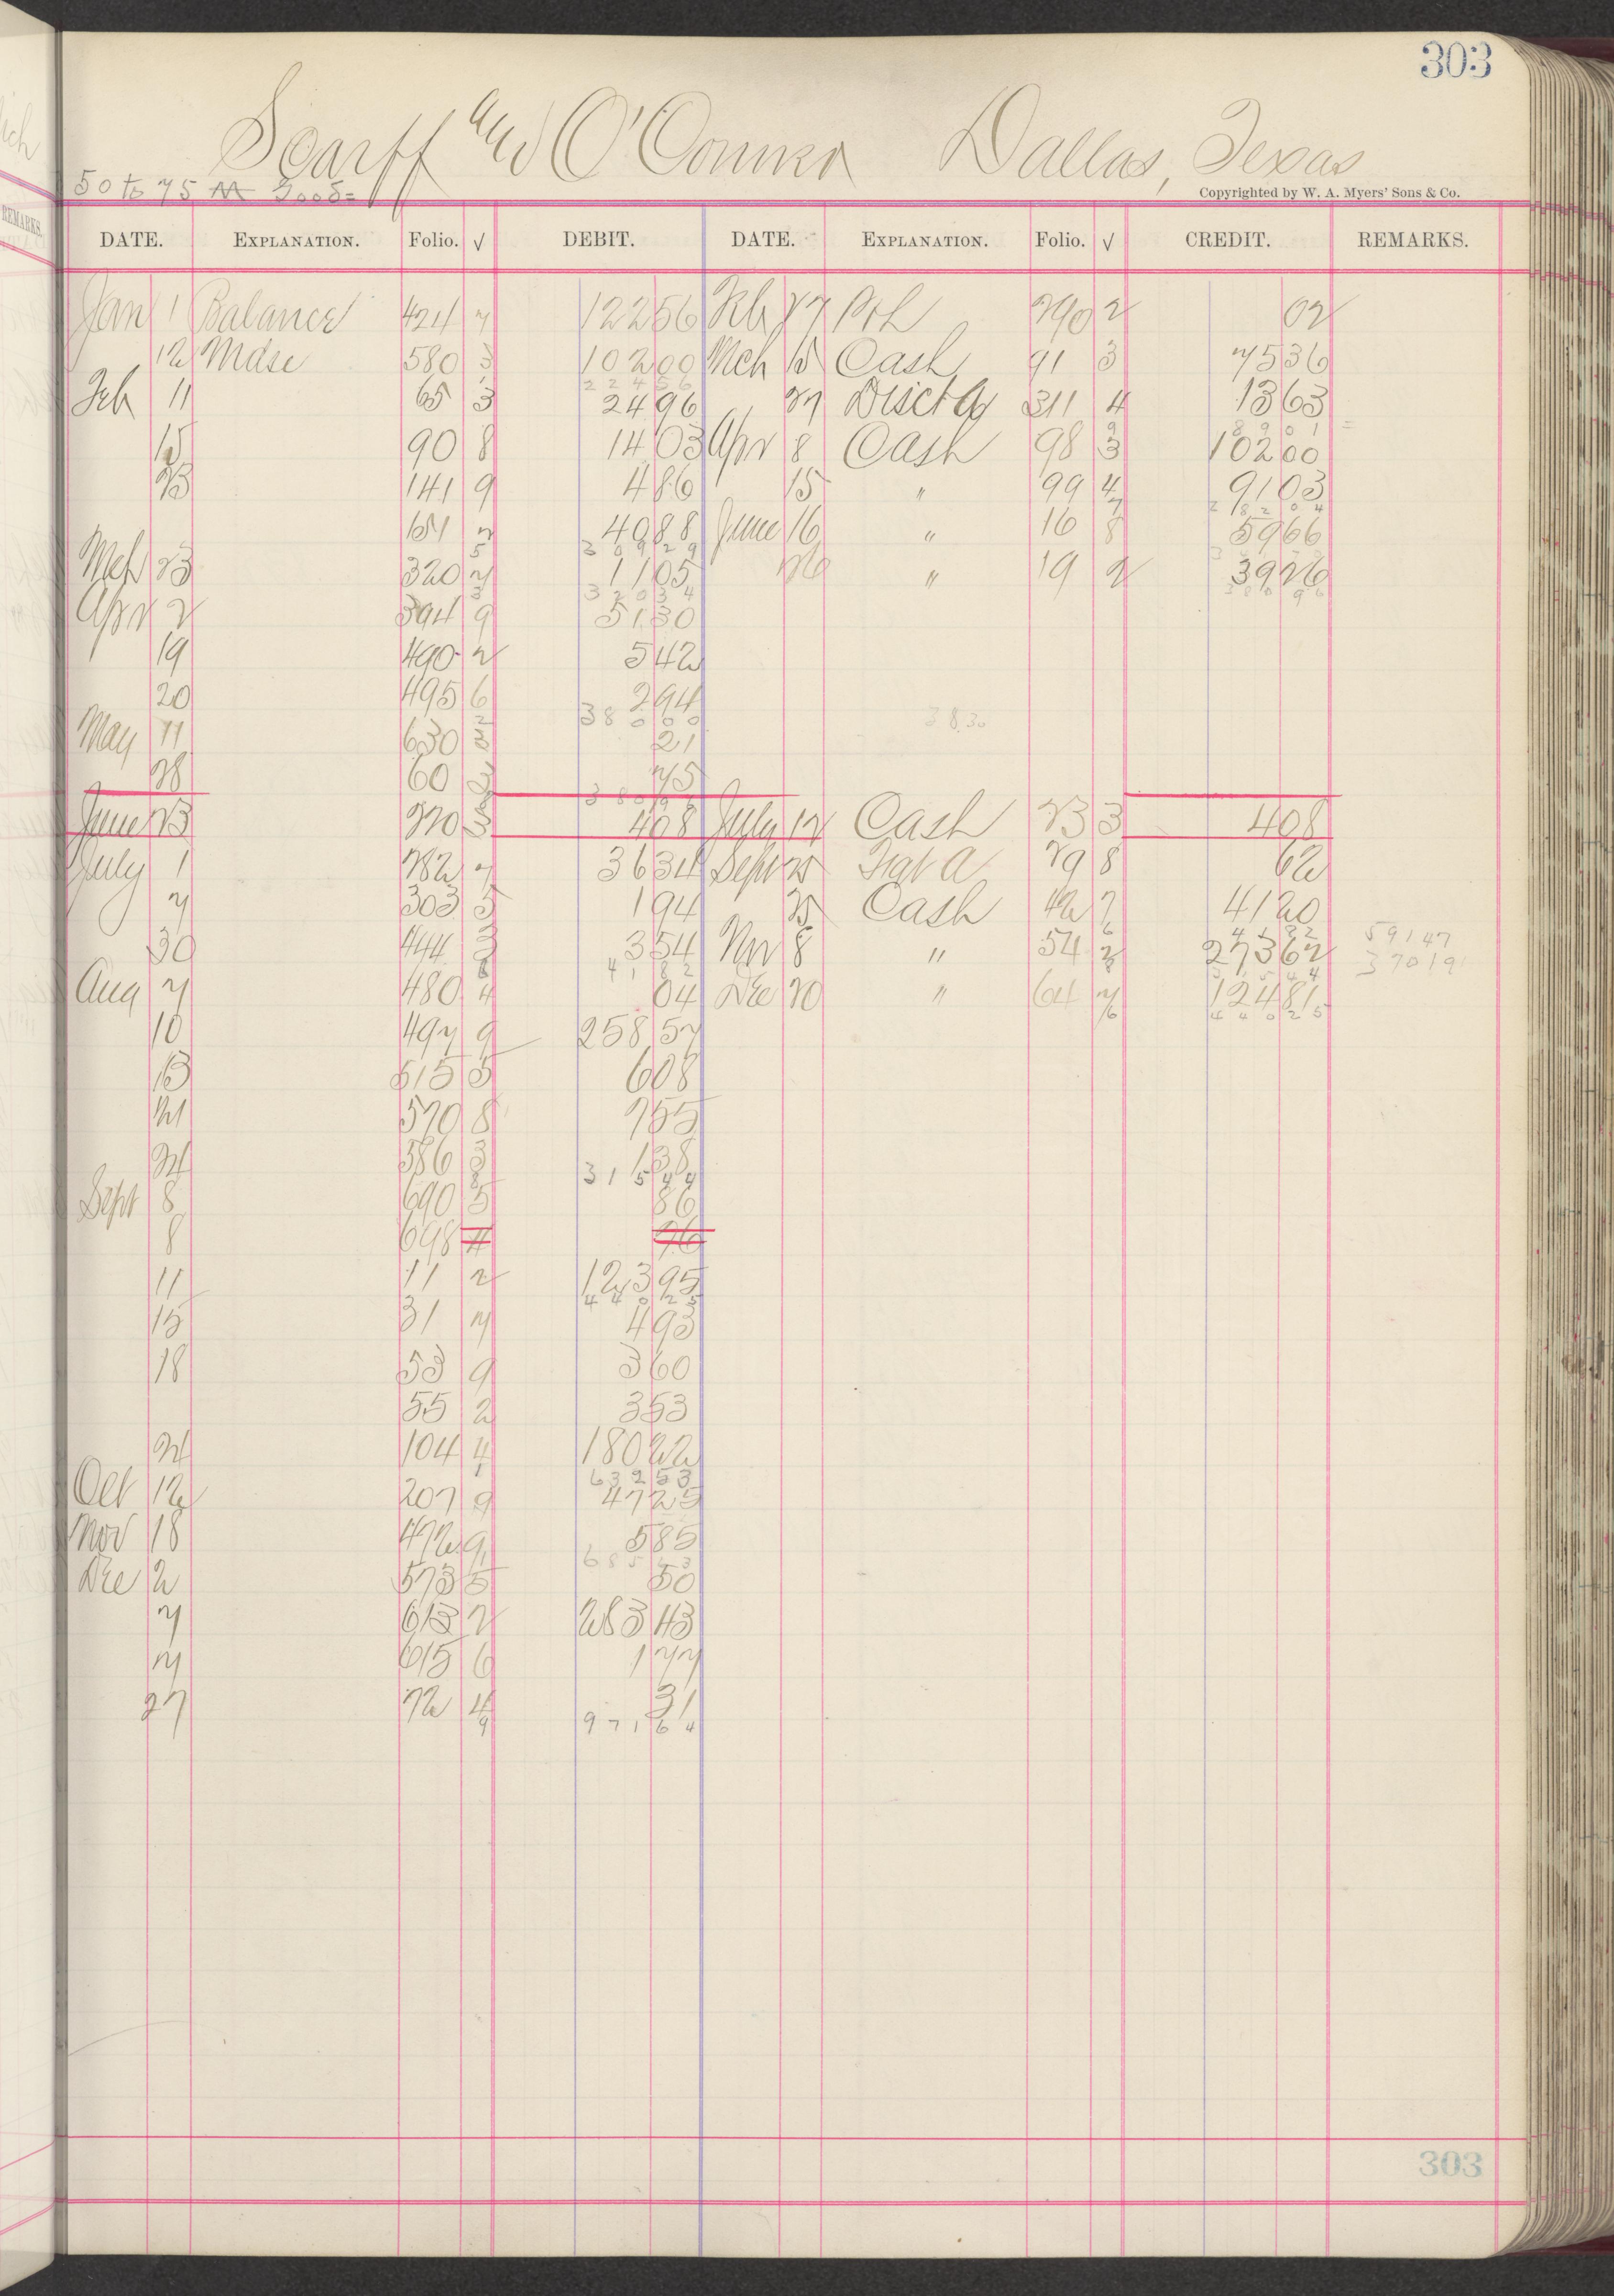 303
Scarff and O'Connor Dallas, Texas
50 to 75 M Good=
Copyrighted by W. A. Myers' Sons & Co.
DATE. EXPLANATION. Folio. √ DEBIT. DATE. EXPLANATION. Folio. √ CREDIT. REMARKS.
Jan 1 Balance 424 7 122 56 Feb 27 290 2 02
12 Mdse 580 3 102 00 Mch 15 Cash 91 3 75 36
2 2 4 5 6
Feb 11 65 3 24 96 27 Disct a 311 4 13 63
8 9 0 1
15 90 8 14 03 Apr 8 Cash 98 3 102 00
23 141 9 4 86 15 " 99 4 91 03
2 8 2 0 4
151 2 40 88 June 16 " 16 8 59 66
3 0 9 2 9
Mch 23 320 7 11 05 26 " 19 2 39 26
3 2 0 3 4
3 8 0 9 6
Apr 2 394 9 51 30
19 490 2 5 42
20 495 6 2 94
3 8 0 0 0
38 30
May 11 630 21
28 60 75
3 8 0 9 6
June 23 220 3 4 08 July 12 Cash 23 3 4 08
July 1 282 7 36 34 Sept 25 Frgt a 29 8 62
7 303 5 1 94 25 Cash 42 7 41 20
4 1 8 2
59147
30 444 3 54 Nov 8 " 54 273 62
4 1 8 2
37019
3 1 5 4 4
Aug 7 480 4 04 Dec 20 " 64 7 124 81
4 4 0 2 5
10 497 9 258 57
13 515 5 6 08
21 570 8 7 55
24 586 3 1 38
3 1 5 4 4
Sept 8 690 5 86
8 698 4 76
11 11 2 123 95
4 4 0 2 5
15 31 7 4 93
18 53 9 3 60
55 2 3 53
24 104 4 180 22
6 3 2 5 3
Oct 12 207 9 47 25
Nov 18 472 9 5 85
6 8 5 6 3
Dec 2 573 5 50
7 613 2 283 43
7 615 6 1 77
27 72 4 31
9 7 1 6 4
303